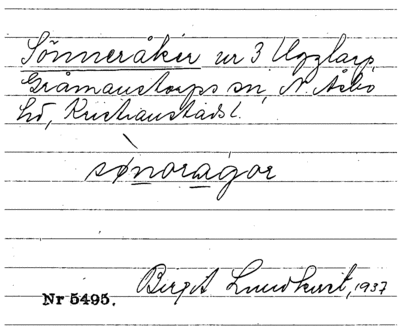 Sönneråker nr 3 Ugglarp,
Gråmanstorps sn, N Åsbo
hd, Kristianstads l.
sønoragor
Birgit Lundkvist, 1937
Nr 5495.